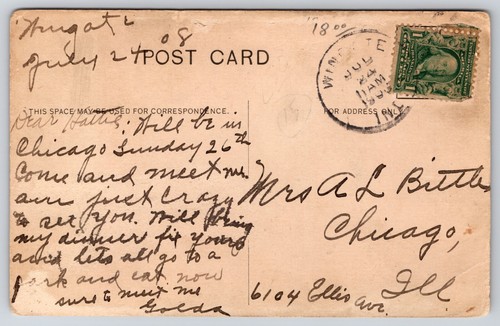 Wingate
July 24 08
'18 00
POST CARD
WINGATE
JUL
24
11 AM
1908
IND.
THIS SPACE MAY BE USED FOR CORRESPONDENCE.
FOR ADDRESS ONLY.
Dear Hattie: Will be in
Chicago Sunday 26th
Come and meet me.
am just crazy
to see you. Will bring
my dinner fix yours
and lets all go to a
park and eat now
sure to meet me
Golda
Mrs A L Bittle
Chicago,
Ill
6104 Ellis Ave.